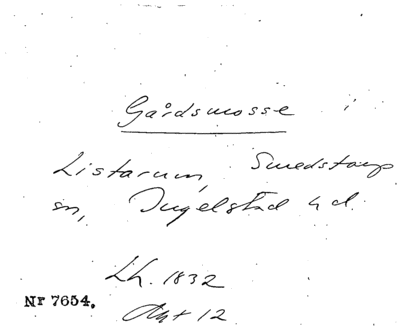 Gårdsmosse i
Listarum, Smedstorps
sn, Ingelstad hd.
Lh. 1832
Akt 12
Nr 7654.